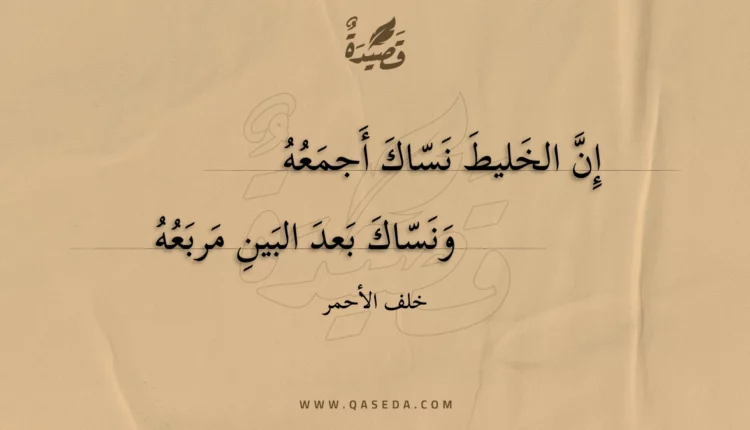 قَصِيدَةٌ
إِنَّ الخَليطَ نَسّاكَ أَجمَعُهُ
وَنَسّاكَ بَعدَ البَينِ مَربَعُهُ
خلف الأحمر
WWW.QASEDA.COM